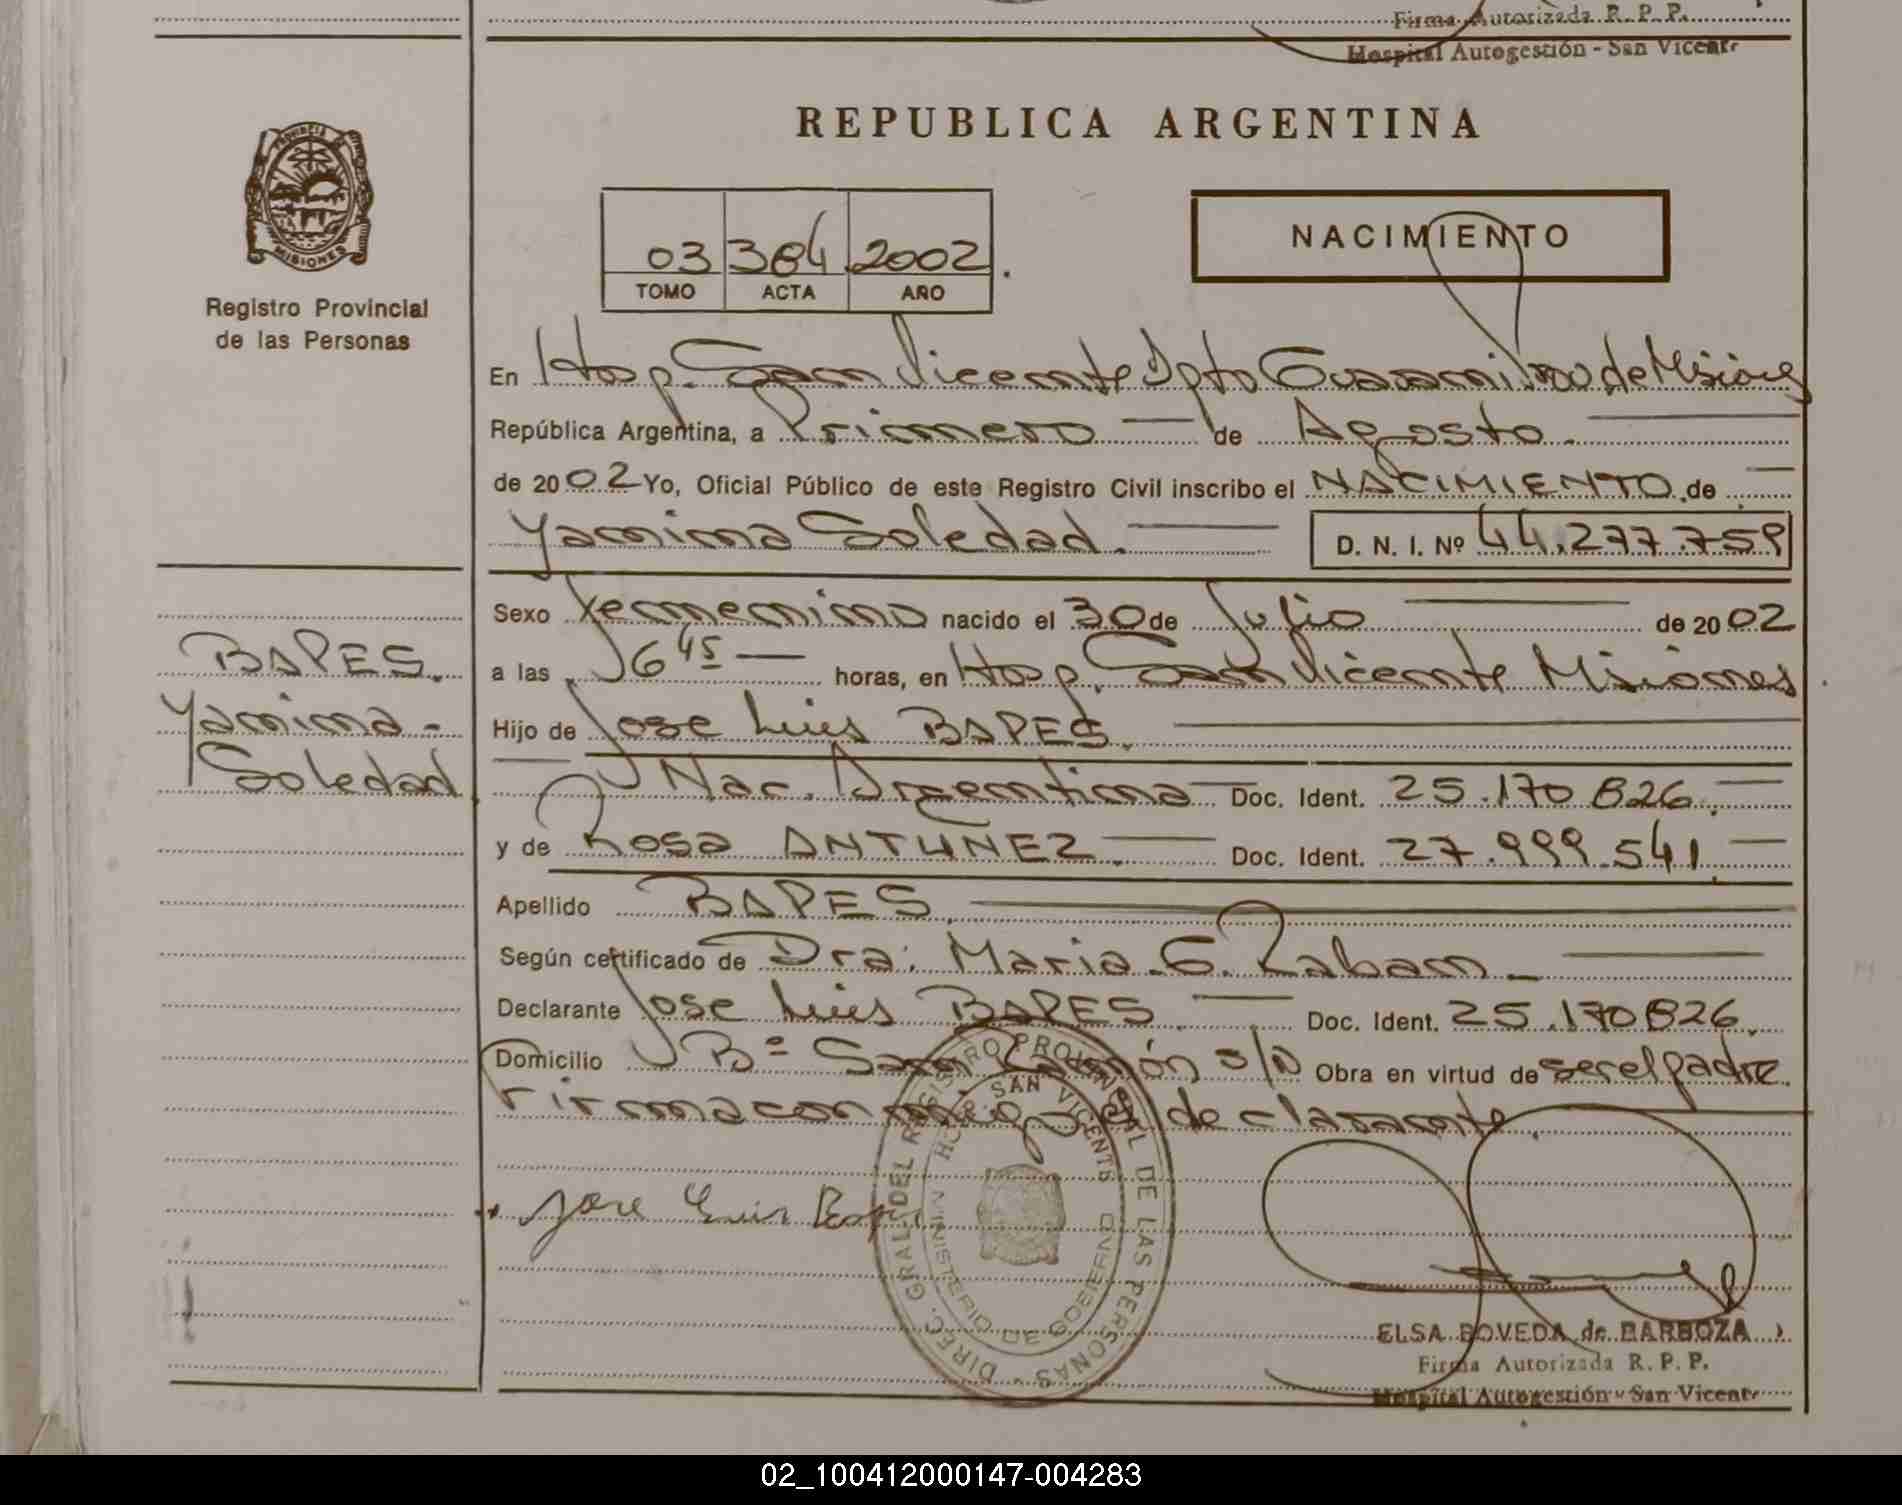 Firma Autorizada R. P. P.
Hospital Autogestión - San Vicente
PROVINCIA DE
MISIONES
Registro Provincial
de las Personas
REPUBLICA ARGENTINA
03 384 2002
TOMO ACTA AÑO
NACIMIENTO
En Hosp. San Vicente Dpto Guaraní Prov de Misiones
República Argentina, a Primero — de Agosto. —
de 2002 Yo, Oficial Público de este Registro Civil inscribo el NACIMIENTO de —
Yamima Soledad. — D. N. I. Nº 44.277.759
Sexo Femenino nacido el 30 de Julio — de 2002
a las 6 45 — horas, en Hosp. San Vicente Misiones
Hijo de Jose Luis BAPES. —
— Nac. Argentina — Doc. Ident. 25.170.826. —
y de Rosa ANTUNEZ. — Doc. Ident. 27.999.541. —
Apellido BAPES. —
Según certificado de Dra. Maria. G. Zaban. —
Declarante Jose Luis BAPES. — Doc. Ident. 25.170826.
Domicilio Bº San Ramón s/n Obra en virtud de ser el padre.
Firma conmigo el declarante.
Jose Luis
BAPES.
Yamima -
Soledad.
DIREC. GRAL. DEL REGISTRO PROVINCIAL DE LAS PERSONAS
HOSP. SAN VICENTE
MINISTERIO DE GOBIERNO
ELSA BOVEDA de BARBOZA
Firma Autorizada R. P. P.
Hospital Autogestión - San Vicente
02_100412000147-004283